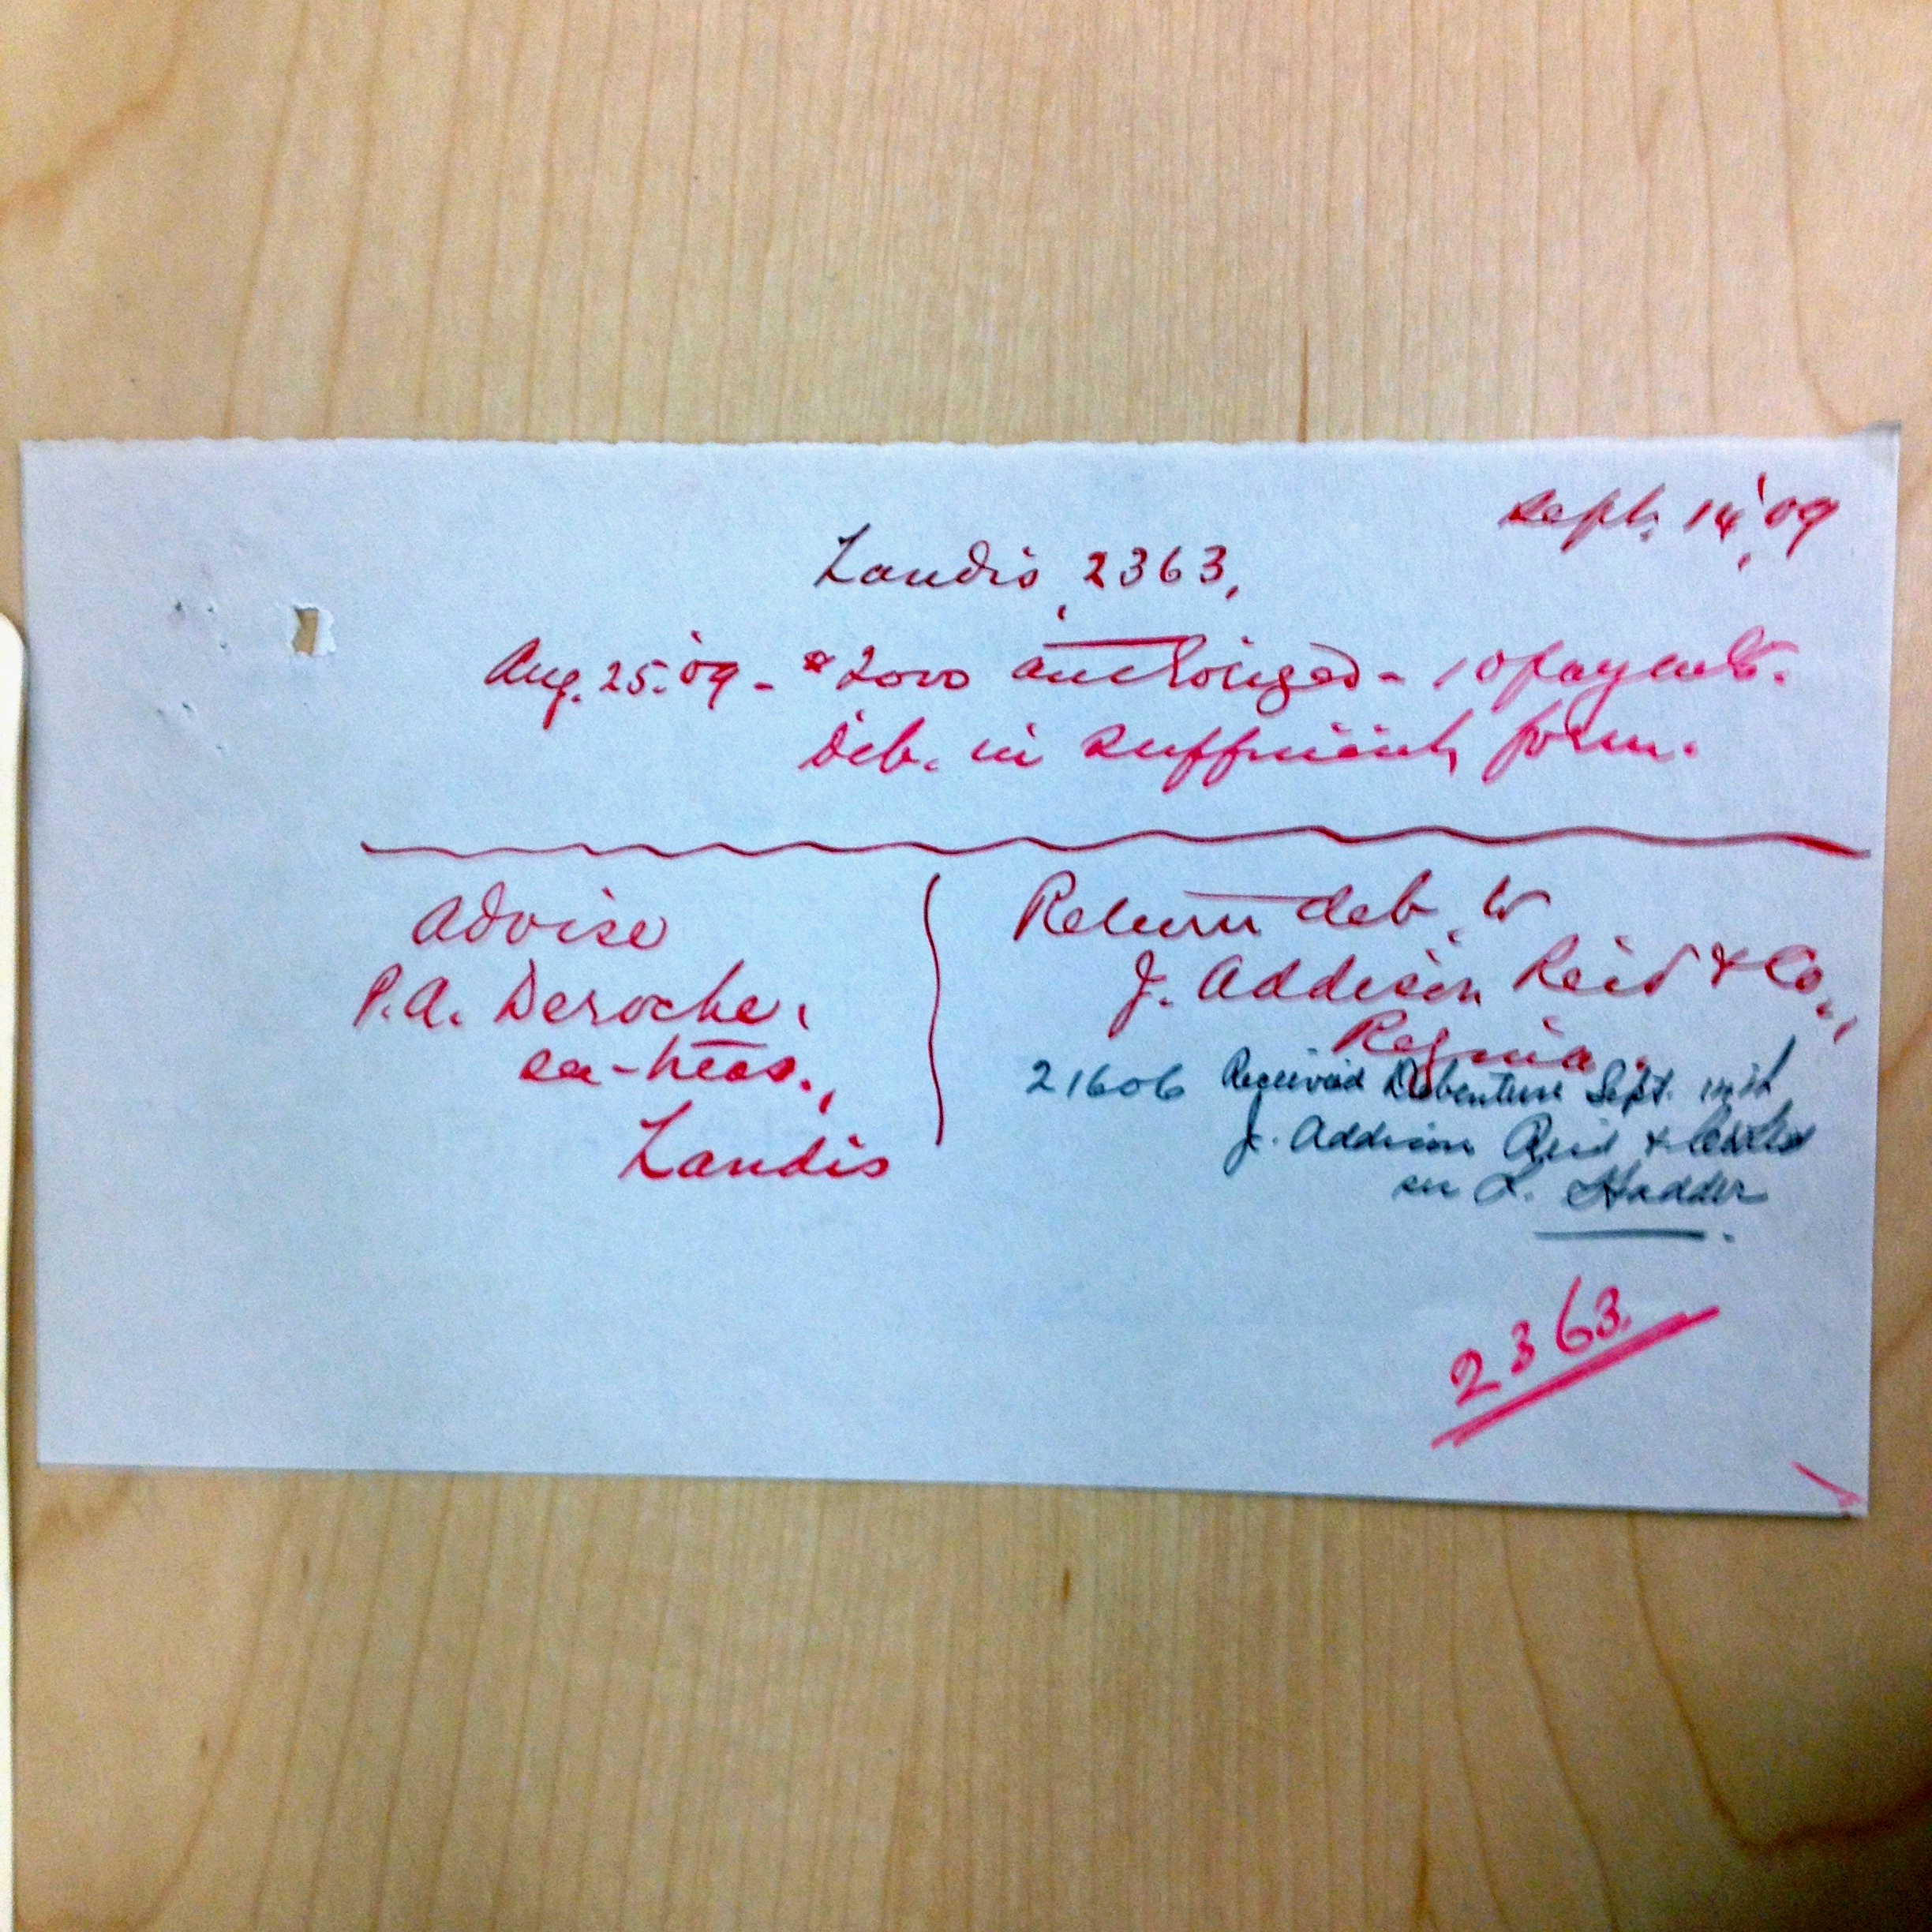 Sept. 14, '09
Landis, 2363,
Aug. 25. '09 - $2000 authorized - 10 payments.
Deb. in sufficient form.
Advise
P.A. Deroche,
sec-treas.,
Landis
Return deb. to
J. Addison Reid & Co.,
Regina.
21606 Received Debenture Sept.
J. Addison Reid & Co Ltd
per L. Hadder
2363.